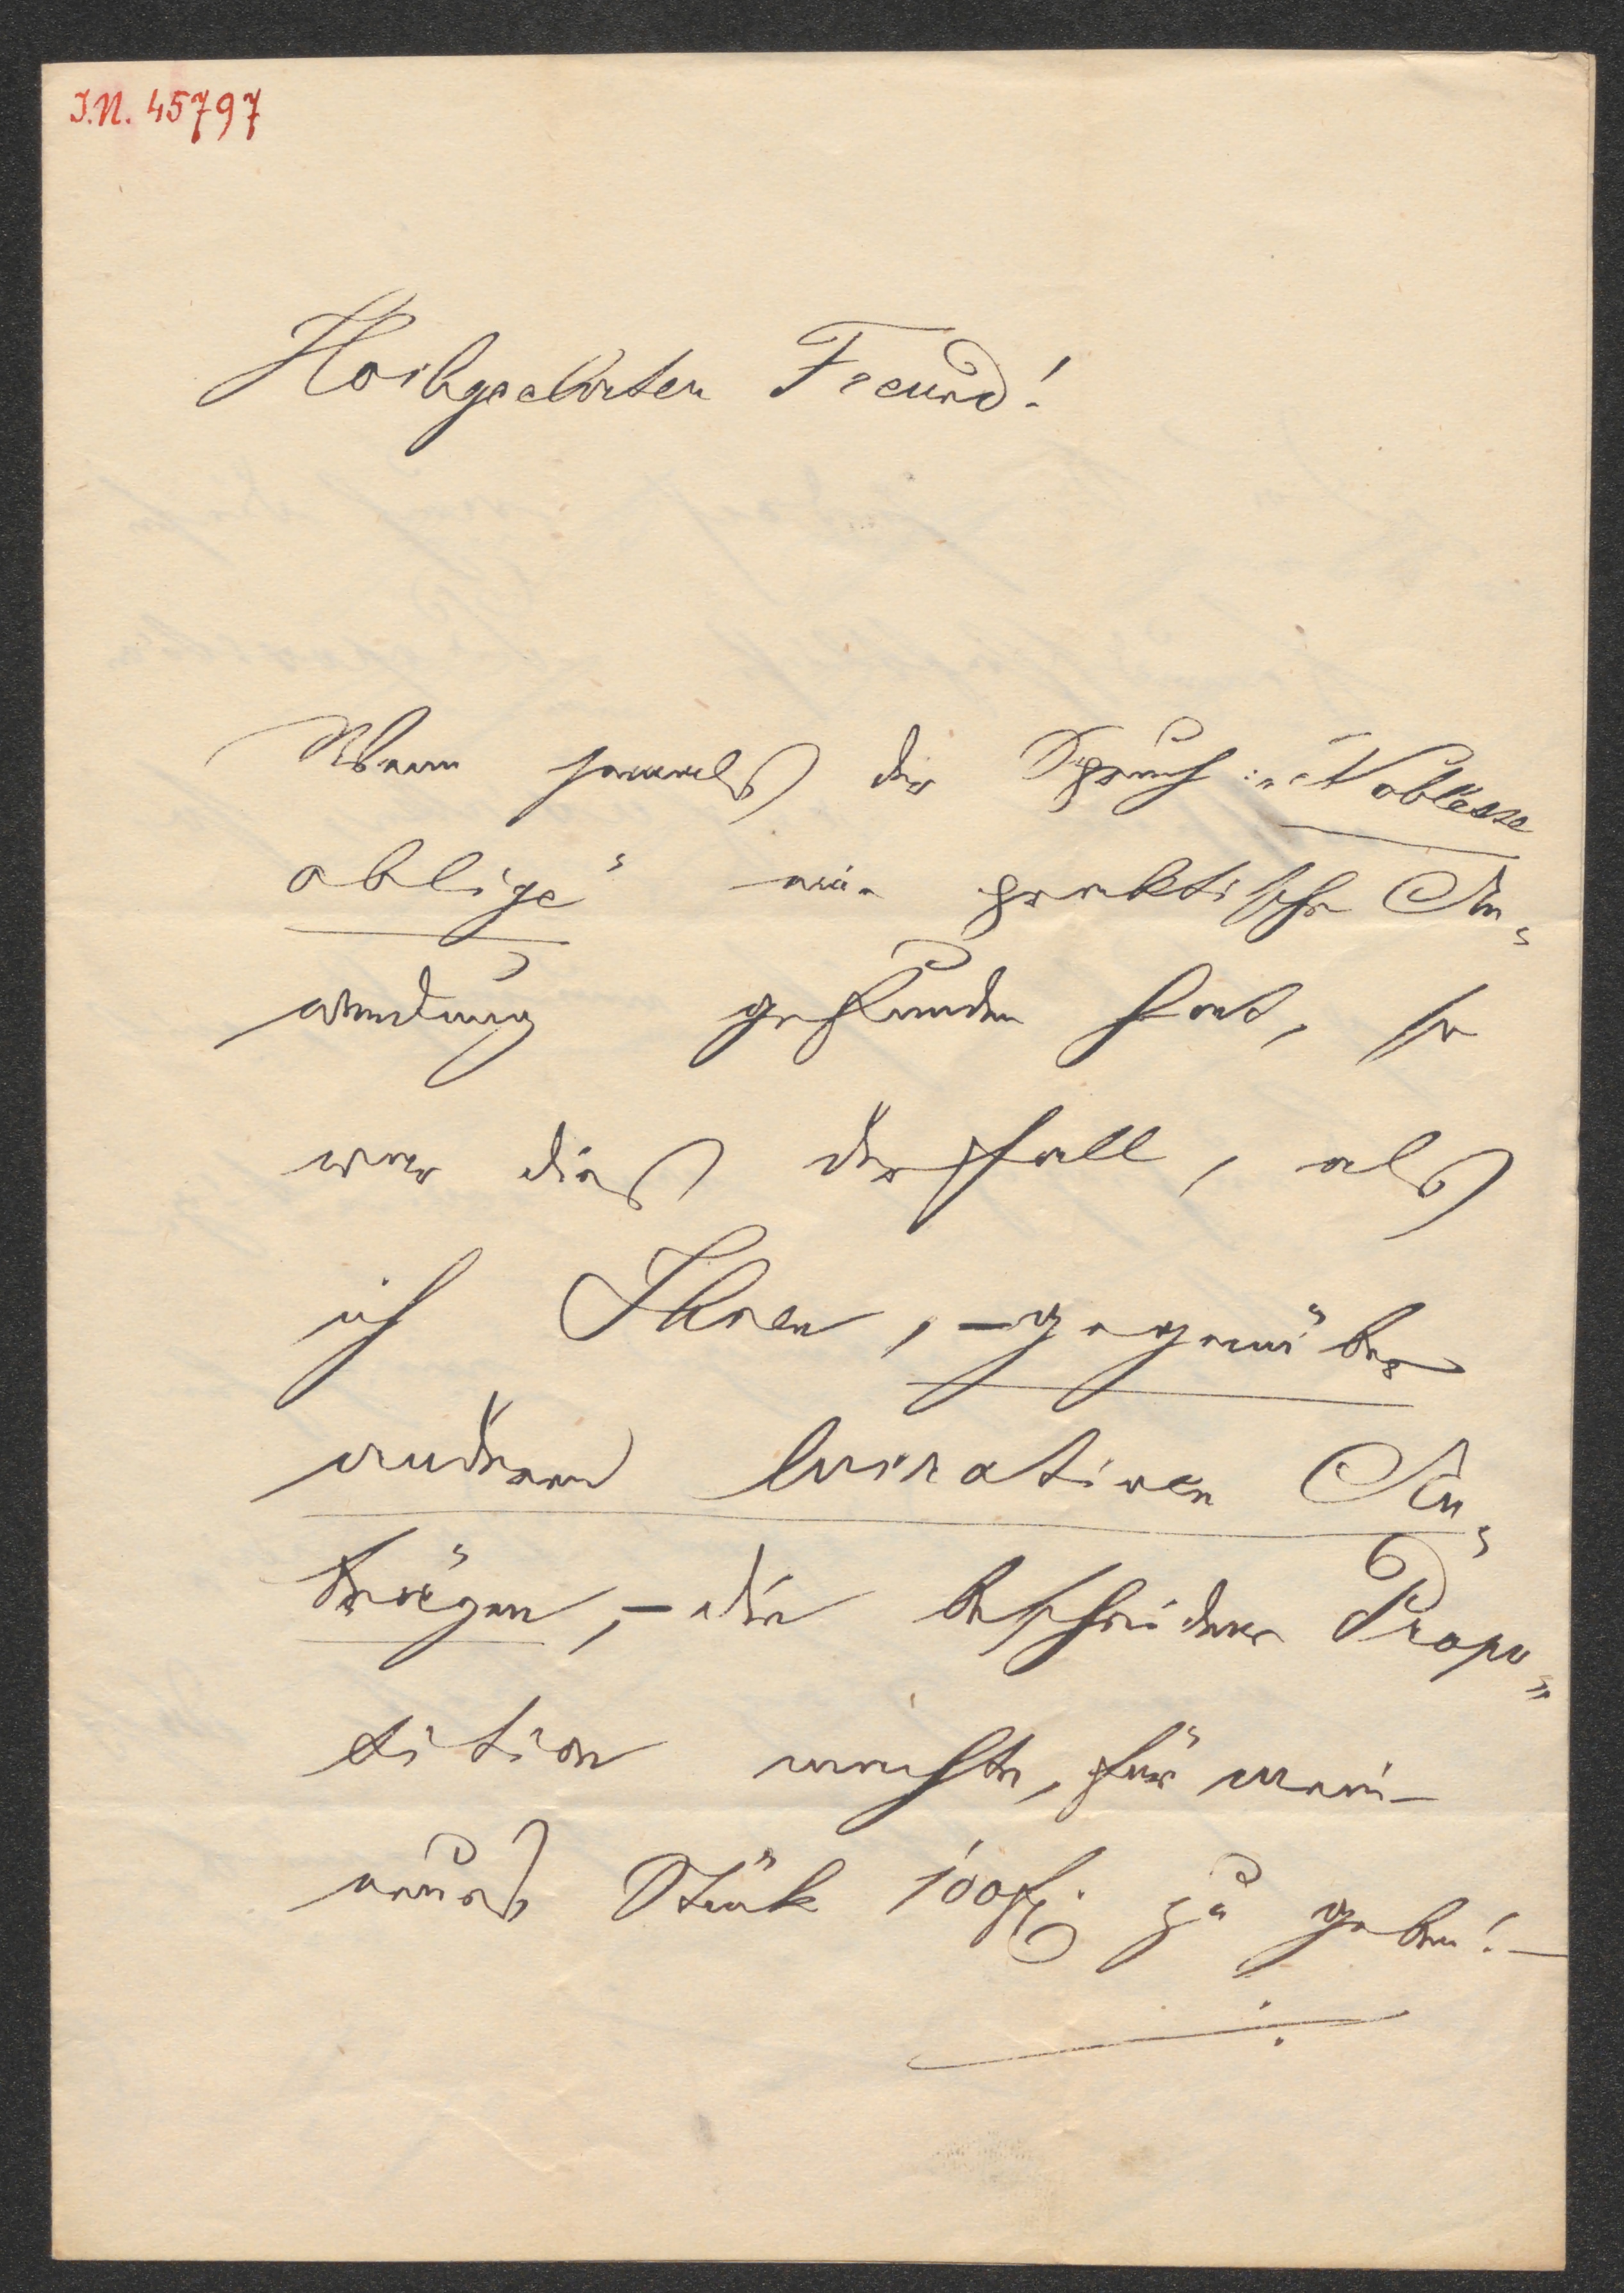 I.N. 45797
Hochgeehrter Freund!
Wenn jemals der Spruch: „Noblesse
oblige" eine praktische An„
wendung gefunden hat, so
war dies der Fall, als
ich Ihnen, – gegenüber
anderen lucrativen An„
trägen, – die bescheidene Propo„
sition machte, für mein
neues Stück 100 fl. zu geben! –